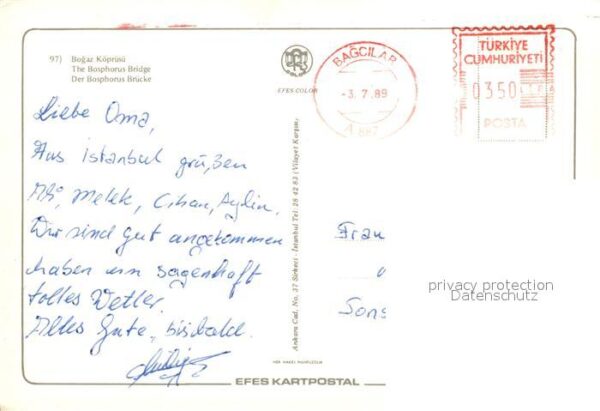 97) Boğaz Köprüsü
The Bosphorus Bridge
Der Bosphorus Brücke
COLOR
EFES COLOR
BAĞCILAR
-3. 7. 89
A 887
TÜRKİYE
CUMHURİYETİ
0350
POSTA
Liebe Oma,
Aus istanbul grüßen
Melek, Cihan, Aylin.
Wir sind gut angekommen
haben ein sagenhaft
tolles Wetter.
Alles Gute, bis bald.
Ankara Cad. No. 37 Sirkeci - İstanbul Tel: 28 42 83 (Vilayet Karşısı)
Frau
Sons
privacy protection
Datenschutz
HER HAKKI MAHFUZDUR
EFES KARTPOSTAL